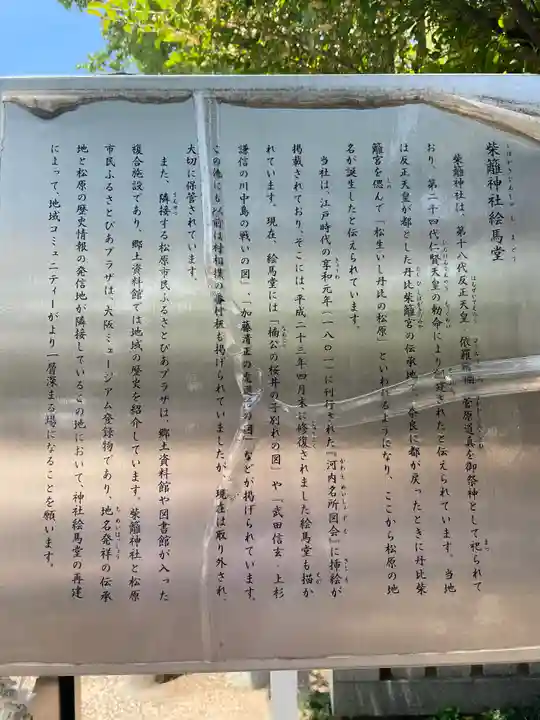 柴籬神社絵馬堂
柴籬神社は、第十八代反正天皇 依羅 菅原道真を御祭神として祀られて
おり、第二十四代仁賢天皇の勅命により創建されたと伝えられています。当地
は反正天皇が都とした丹比柴籬宮の伝承地で、奈良に都が戻ったときに丹比柴
籬宮を偲んで「松生いし丹比の松原」といわれるようになり、ここから松原の地
名が誕生したと伝えられています。
当社は、江戸時代の享和元年(一八〇一)に刊行された『河内名所図会』に挿絵が
掲載されており、そこには、平成二十三年四月末に修復されました絵馬堂も描か
れています。現在、絵馬堂には「楠公の桜井の子別れの図」や「武田信玄・上杉
謙信の川中島の戦いの図」「加藤清正の の図」などが掲げられています。
この他にも以前は村相撲の番付板も掲げられていましたが、現在は取り外され、
大切に保管されています。
また、隣接する松原市民ふるさとぴあプラザは、郷土資料館や図書館が入った
複合施設であり、郷土資料館では地域の歴史を紹介しています。柴籬神社と松原
市民ふるさとぴあプラザは、大阪ミュージアム登録物であり、地名発祥の伝承
地と松原の歴史情報の発信地が隣接しているこの地において、神社絵馬堂の再建
によって、地域コミュニティーがより一層深まる場になることを願います。